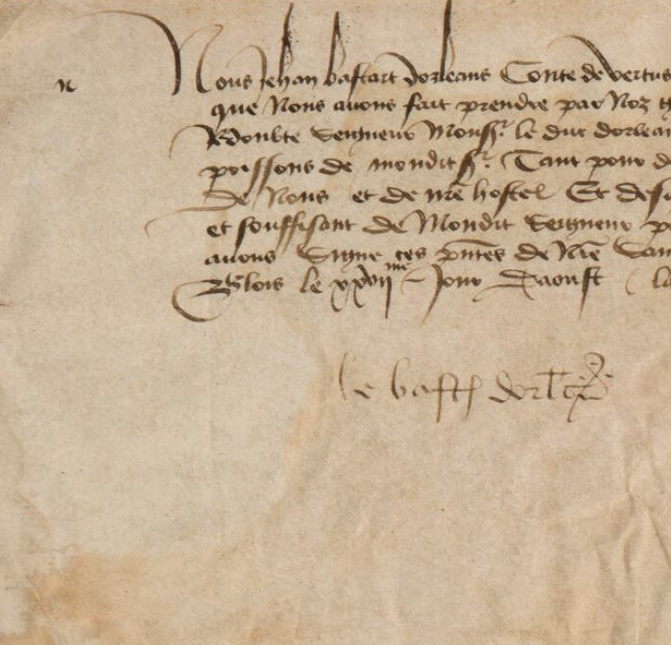 n
Nous Jehan bastart dorleans Conte de vertus
que Nous auons fait prendre par Noz
Redoubte Seigneur Mons^r. le duc dorleans
poissons de mondit s^r. Tant pour
de Nous et de nr̃e hostel Et
et souffisant de Mondit Seigneur
auons Signe ces pñtes de Nr̃e
Blois le xxvii^me Jour Daoust
le bast dorleans